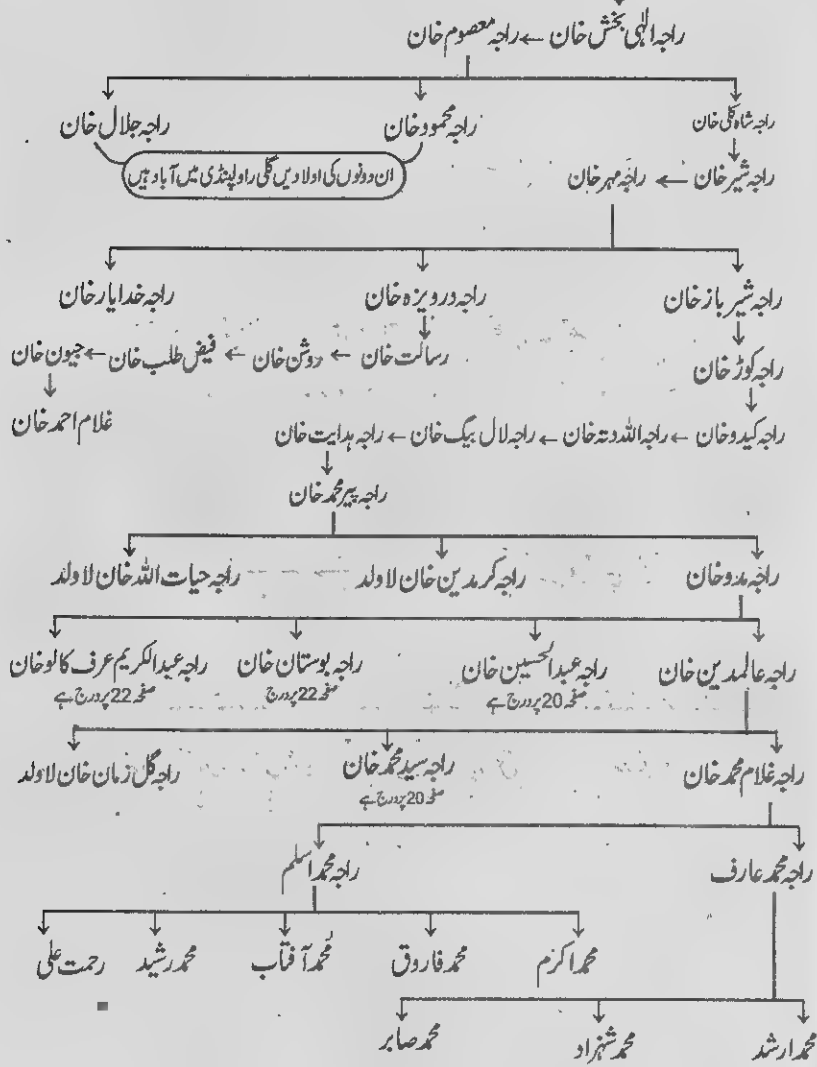 راجہ الٰہی بخش خان ← راجہ معصوم خان
راجہ شاہ کلی خان راجہ محمود خان راجہ جلال خان
ان دونوں کی اولادیں گلی راولپنڈی میں آباد ہیں
راجہ شیر خان ← راجہ مہر خان
راجہ شیر باز خان راجہ درویزہ خان راجہ خدایار خان
راجہ کوڑ خان رسالت خان ← روشن خان ← فیض طلب خان ← جیون خان
غلام احمد خان
راجہ کیدو خان ← راجہ اللہ دتہ خان ← راجہ لال بیگ خان ← راجہ ہدایت خان
راجہ پیر محمد خان
راجہ مدو خان راجہ کرمدین خان لاولد راجہ حیات اللہ خان لاولد
راجہ عالمدین خان راجہ عبدالحسین خان راجہ بوستان خان راجہ عبدالکریم عرف کالو خان
صفحہ 20 پر درج ہے صفحہ 22 پر درج صفحہ 22 پر درج ہے
راجہ غلام محمد خان راجہ سید محمد خان راجہ گل زمان خان لاولد
صفحہ 20 پر درج ہے
راجہ محمد عارف راجہ محمد اسلم
محمد اکرم محمد فاروق محمد آفتاب محمد رشید رحمت علی
محمد ارشد محمد شہزاد محمد صابر